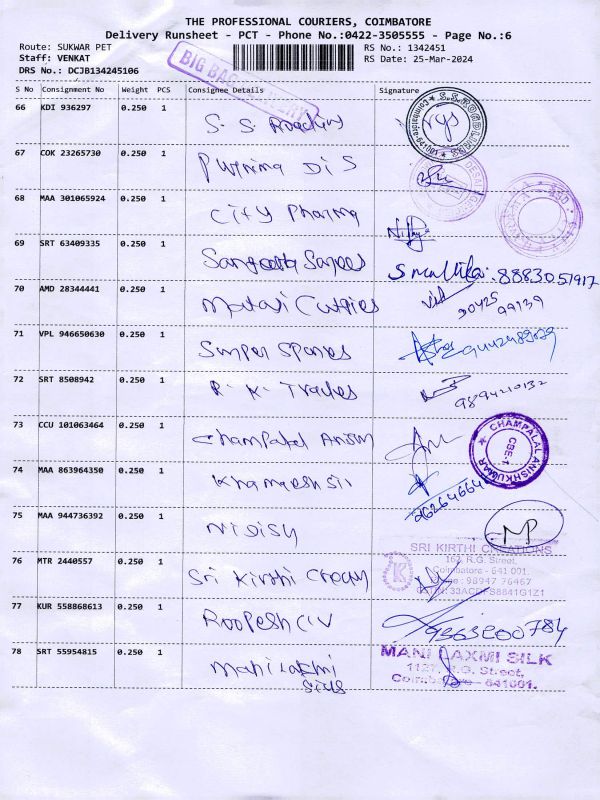 THE PROFESSIONAL COURIERS, COIMBATORE
Delivery Runsheet - PCT - Phone No.:0422-3505555 - Page No.:6
Route: SUKWAR PET
RS No.: 1342451
Staff: VENKAT
RS Date: 25-Mar-2024
DRS No.: DCJB134245106
BIG BAG
S No Consignment No Weight PCS Consignee Details Signature
66 KDI 936297 0.250 1
S. S.
67 COK 23265730 0.250 1
Purnima Dis
68 MAA 301065924 0.250 1
City Pharma
69 SRT 63409335 0.250 1
Sangeetha Sarees
Smallika. 8883051917
70 AMD 28344441 0.250 1
Matasi
71 VPL 946650630 0.250 1
Super Spares
9442989079
72 SRT 8508942 0.250 1
R. K. Traders
9894210132
73 CCU 101063464 0.250 1
Champalal Anish
CHAMPALAL ANISHKUMAR
CBE-1
74 MAA 863964350 0.250 1
75 MAA 944736392 0.250 1
MP
76 MTR 2440557 0.250 1
Sri Kirthi
SRI KIRTHI CREATIONS
162, R.G. Street,
Coimbatore - 641 001.
98947 76467
77 KUR 558868613 0.250 1
Roopesh
9363200784
78 SRT 55954815 0.250 1
Mani Laxmi
Silks
MANI LAXMI SILK
R.G. Street,
Coimbatore - 641001.